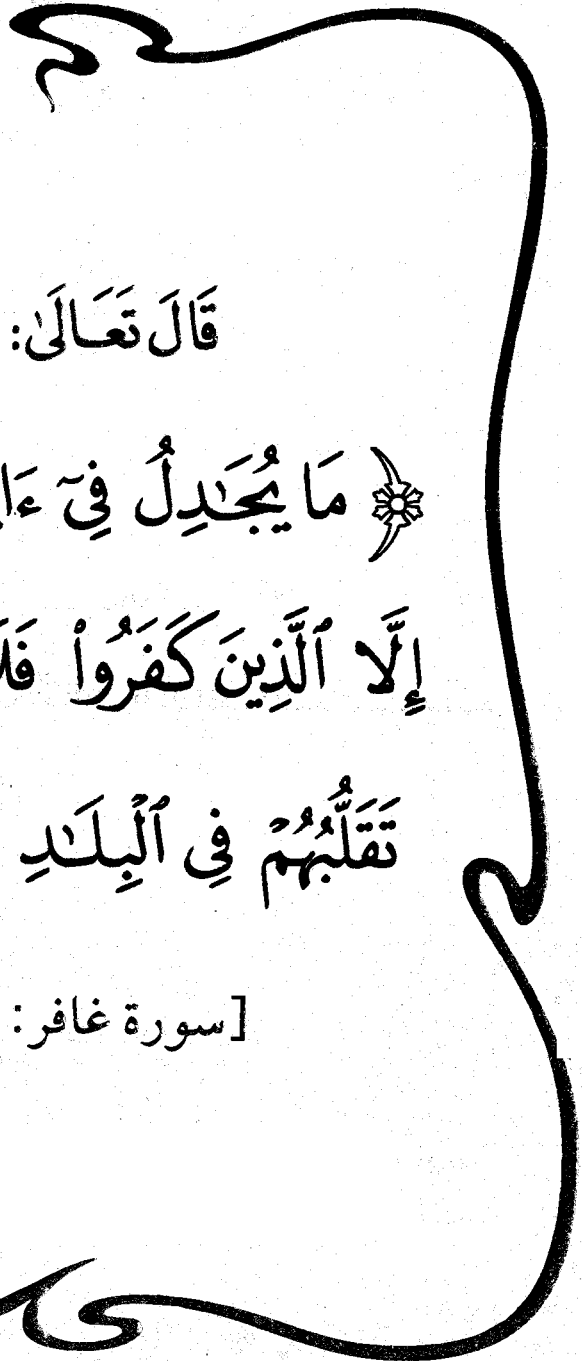 قَالَ تَعَالَىٰ:
﴿ مَا يُجَٰدِلُ فِيٓ
إِلَّا ٱلَّذِينَ كَفَرُوا۟
تَقَلُّبُهُمْ فِى ٱلْبِلَٰدِ
[سورة غافر: